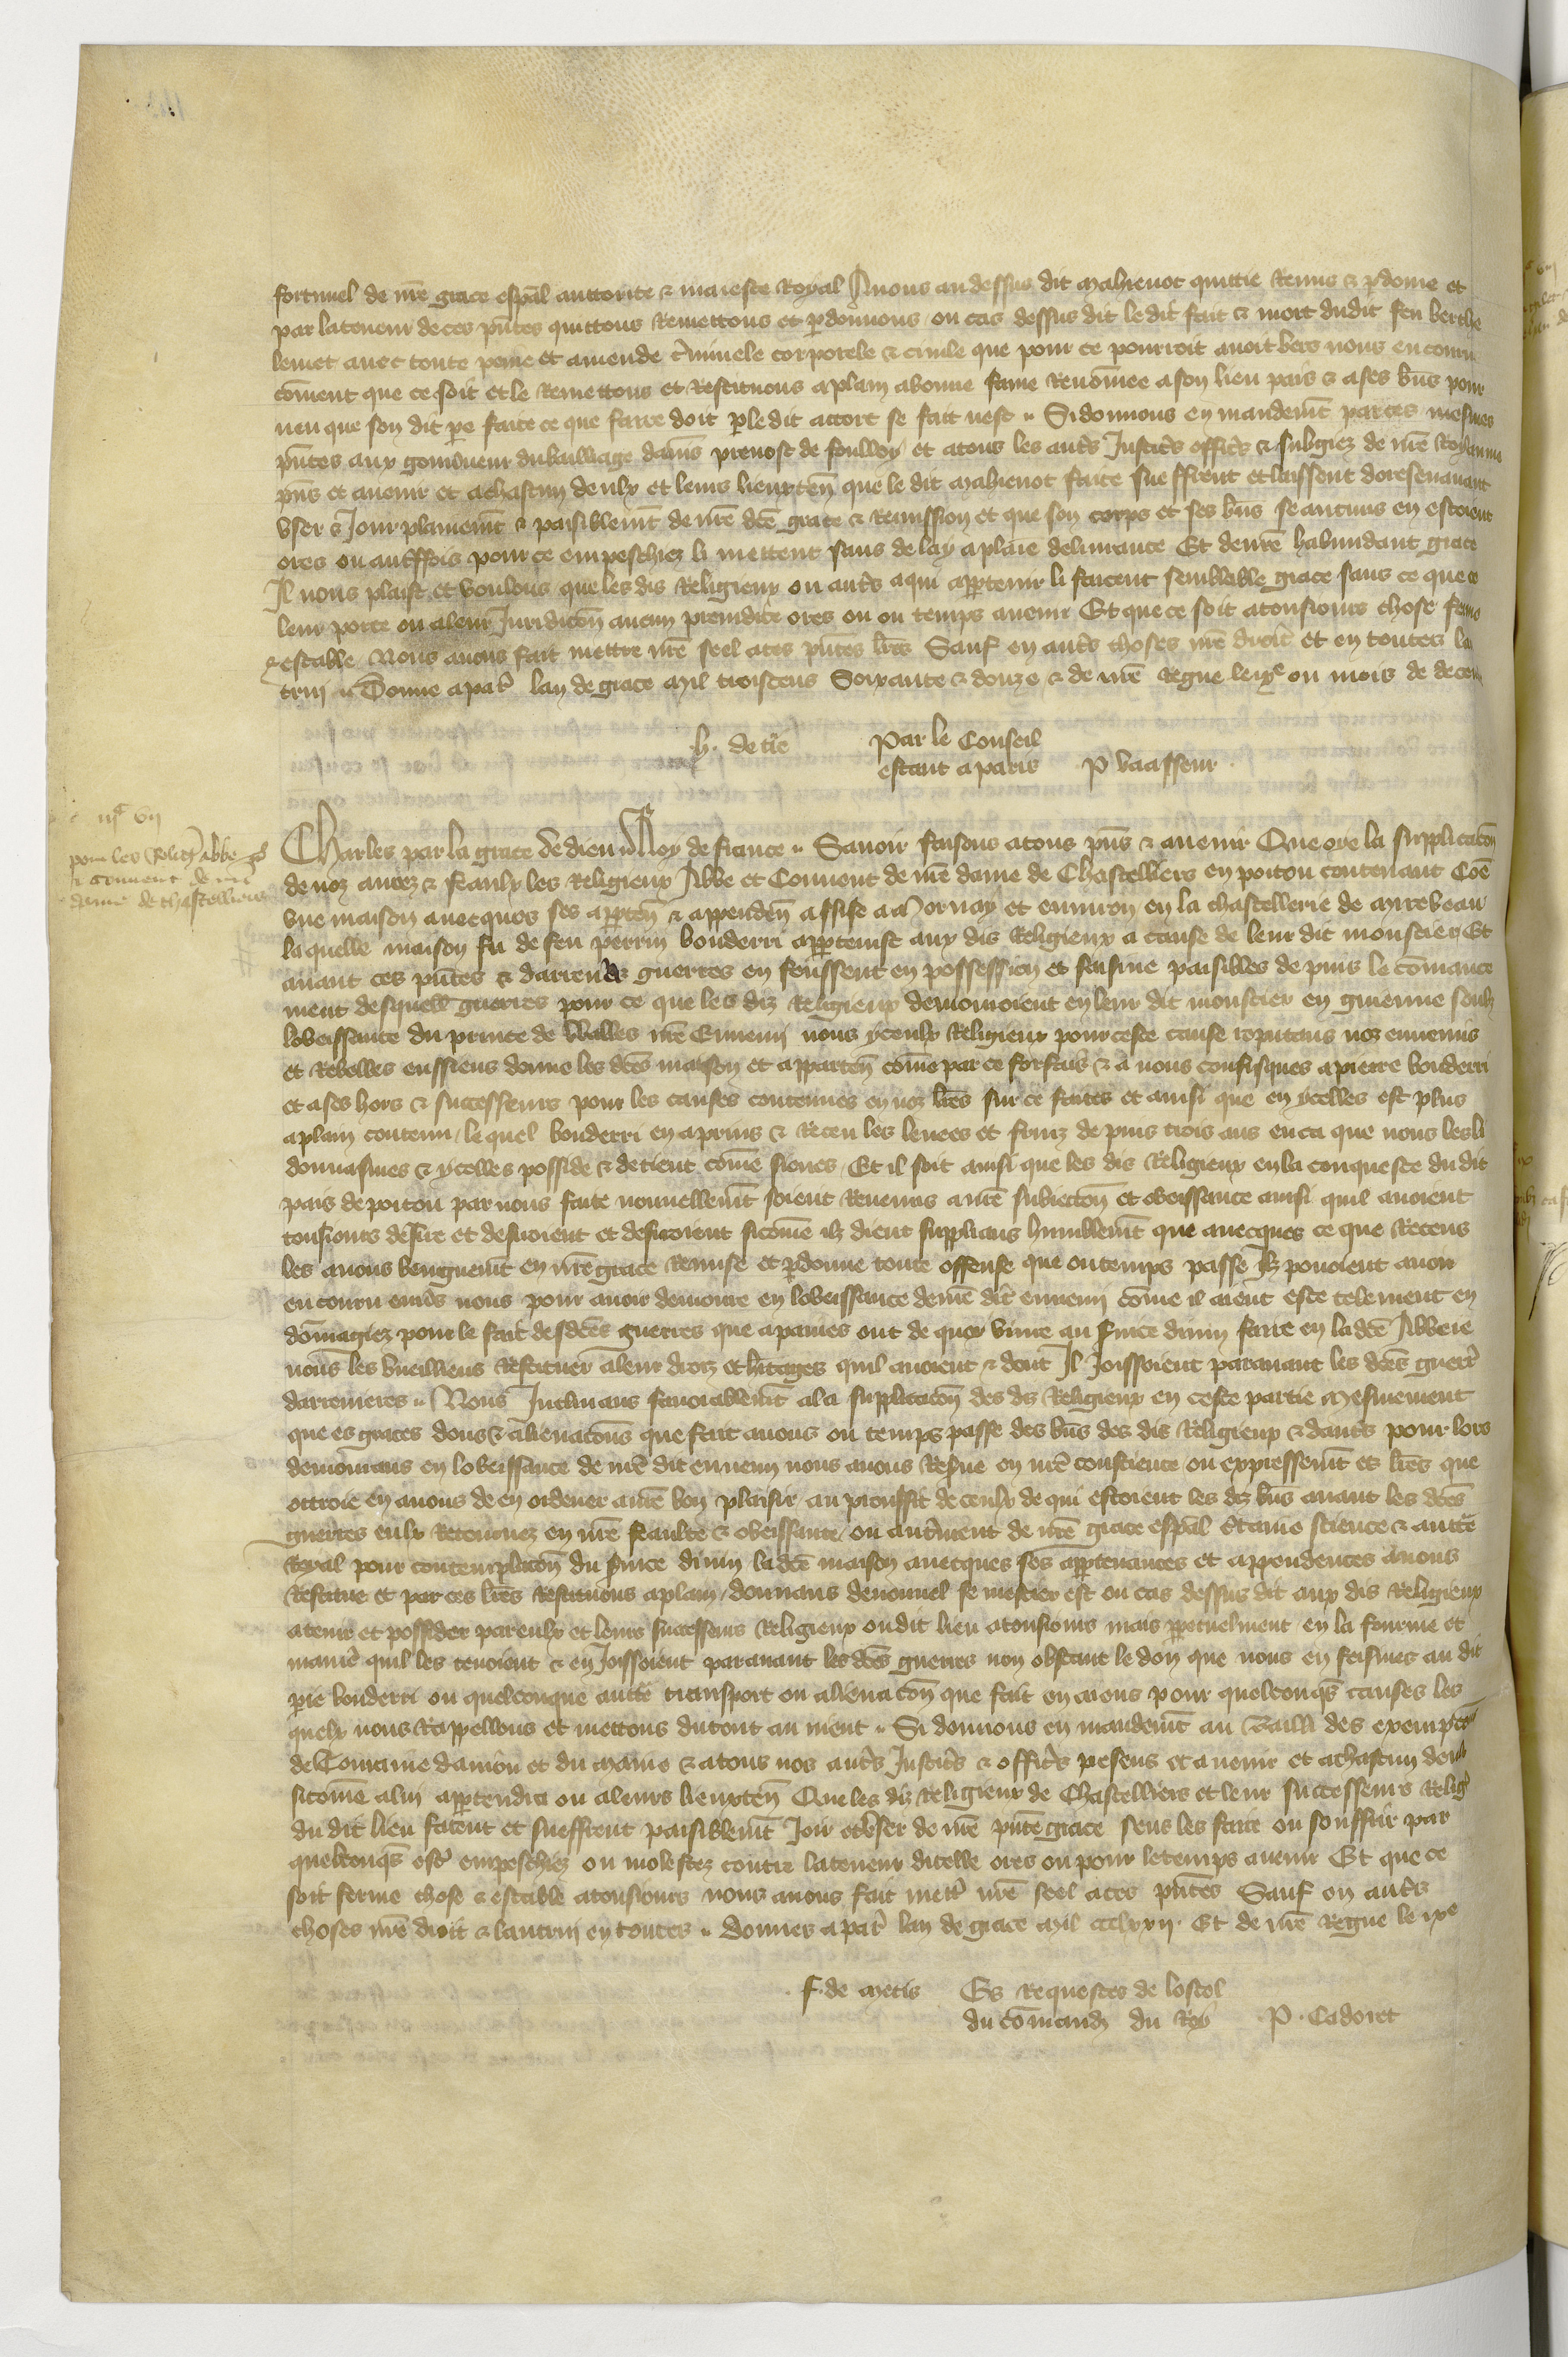 fortunel de nr̃e grace esp̃al auctorite & maieste Royal Auons au dessus dit Mahienot quittie Remis & p̱donne et
par la teneur de ces pñtes quittons Remettons et p̱donnons ou cas dessus dit le dit fait & mort dudit feu berthe
lemet auec toute peine et amende c̃minele corporele & ciuile que pour ce pourroit auoir vers nous encouru
cõment que ce soit et le Remettons et Restituons a plain a bonne fame Renõmee a son lieu pais & a ses bñs pour
ueu que son dit pe face ce que faire doit p̱ le dit accort se fait nest Si donnons en mandem̃t par ces mesmes
pñtes aux gouũneur du bailliage damiẽs preuost de foulloy et a tous les aut̃s Justic̃s offic̃s & subgiez de nr̃e Royaume
pñs et auenir et a chascun deulx et leurs lieuxteñ que le dit Mahienot facent sueffrent et laissent doresenauant
vser & Joir plainem̃t & paisiblem̃t de nr̃e dc̃e grace & Remission et que son corps et ses bñs se aucuns en estoient
ores ou aut̃ffois pour ce empeschiez li mettent sans delay a plaine deliurance Et de nr̃e habundant grace
Il nous plaist et voulons que les dis Religieux ou aut̃s a qui app̱tenir li facent semblable grace sans ce que ce
leur porte ou a leur Juridic̃on aucun preiudice ores ou ou temps auenir Et que ce soit a tousiours chose ferme
& estable Nous auons fait mettre nr̃e seel a ces pñtes lr̃es Sauf en aut̃s choses nr̃e droit et en toutes lau
truj Donne a par̃ lan de grace Mil troiscens Soixante & douze & de nr̃e Regne le ixe ou mois de decem
h. de tr̃e Par le Conseil
estant a paris P vaasseur
pour les Relig̃ Abbe
& conuent de nr̃e
dame de chastelliers
Charles par la grace de dieu Roy de france Sauoir faisons a tous pñs & auenir Que oye la supplicac̃on
de noz amez & feaulx les Religieux Abbe et Conuent de nr̃e dame de Chastelliers en poitou contenant Cõe
vne maison auecques ses app̱teñ & appendeñ assise a Mornay et enuiron en la chastellerie de Mirebeau
la quelle maison fu de feu perrin bouderri app̱tenist aux dis Religieux a cause de leur dit monstier Et
auant ces pñtes & darreñes guerres en feussent en possession et saisine paisibles depuis le cõmance
ment desquelles guerres pour ce que les diz Religieux demouroient en leur dit monstier en guienne soubz
lobeissance du prince de Walles nr̃e Ennemj nous yceulx Religieux pour ceste cause reputans noz ennemis
et Rebelles eussiens donne les dc̃es maison et apparteñ cõme par ce forfais & a nous confisques a pierre bouderri
et a ses hors & successeurs pour les causes contenues en noz lr̃es sur ce faites et ainsi que en ycelles est plus
a plain contenu le quel bouderri en a prins & Receu les leuees et fruiz depuis trois ans enca que nous les li
donnasmes & ycelles posside & detient cõme sienes Et il soit ainsi que les dis Religieux en la conqueste du dit
pais de poitou par nous faite nouuellem̃t soient Reuenus a nr̃e subiecc̃on et obeissance ainsi quil auoient
tousiours desire et desiroient et desiroient si cõme ilz dient supplians humblem̃t que auecques ce que Receus
les auons benignem̃t en nr̃e grace Remise et p̱donne toute offense que ou temps passe Ilz pouoient auoir
encouru enũs nous pour auoir demoure en lobeissance de nr̃e dit ennemj cõme il aient este telement en
dõmagiez pour le fait desdc̃es guerres que a paines ont de quoy viure au s̃uice diuin faire en la dc̃e Abbeie
nous les vueilliens Restituer a leur droiz et h̃itages quil auoient & dont Il Joissoient parauant les dc̃es guerr̃
darrenieres Nous Inclinans fauorablem̃t a la supplicac̃on des diz Religieux en ceste partie Mesmement
que es graces dons & alienac̃ons que fait auons ou temps passe des bñs des dis Religieux & daut̃s pour lors
demourans en lobeissance de nr̃e dit ennemj nous auons Res̃ue en nr̃e conscience ou expressem̃t es lr̃es que
ottroie en auons de en ordener a nr̃e bon plaisir au prouffit de ceulx de qui estoient les diz bñs auant les dc̃es
guerres eulx Retournez en nr̃e feaulte & obeissance ou aut̃ment de nr̃e grace esp̃al c̃taine science & auct̃e
Royal pour contemplac̃on du s̃uice diuin la dc̃e maison auecques ses app̱tenances et appendences auons
Restitue et par ces lr̃es Restituons a plain donnans de nouuel se mestier est ou cas dessus dit aux dis Religieux
a tenir et posseder par eulx et leurs successeurs Religieux ou dit lieu a tousiours mais pp̱etuelment en la fourme et
manie͂ quil les tenoient & en Joissoient parauant les dc̃es guerres non obstant le don que nous en feismes au dit
pie͂ bouderri ou quelconque autre transport ou alienac̃on que fait en aions pour quelconq̃s causes les
quelx nous Rappellons et mettons du tout au nient Si donnons en mandem̃t au Bailli des exempc̃ons
de Touraine danjou et du Maine & a tous nos aut̃s Justic̃s & offic̃s presens et auenir et a chascun deulx
si cõme a lui app̱tendra ou a leurs lieuxteñ Que les diz Religieux de Chastelliers et leur successeurs Relig̃
du dit lieu facent et sueffrent paisiblem̃t Joir et vser de nr̃e pñte grace sens les faire ou souffrir par
quelconq̃s est̃ empeschiez ou molestez contre la teneur dicelle ores ou pour le temps auenir Et que ce
soit ferme chose & estable a tousiours nous auons fait mett̃ nr̃e seel a ces pñtes Sauf en aut̃s
choses nr̃e droit & lautruj en toutes Donnes a par̃ lan de grace Mil ccclxxij. Et de nr̃e Regne le ixe
f. de Metis Es Requestes de lostel
du cõmandz du Roy P. Cadoret